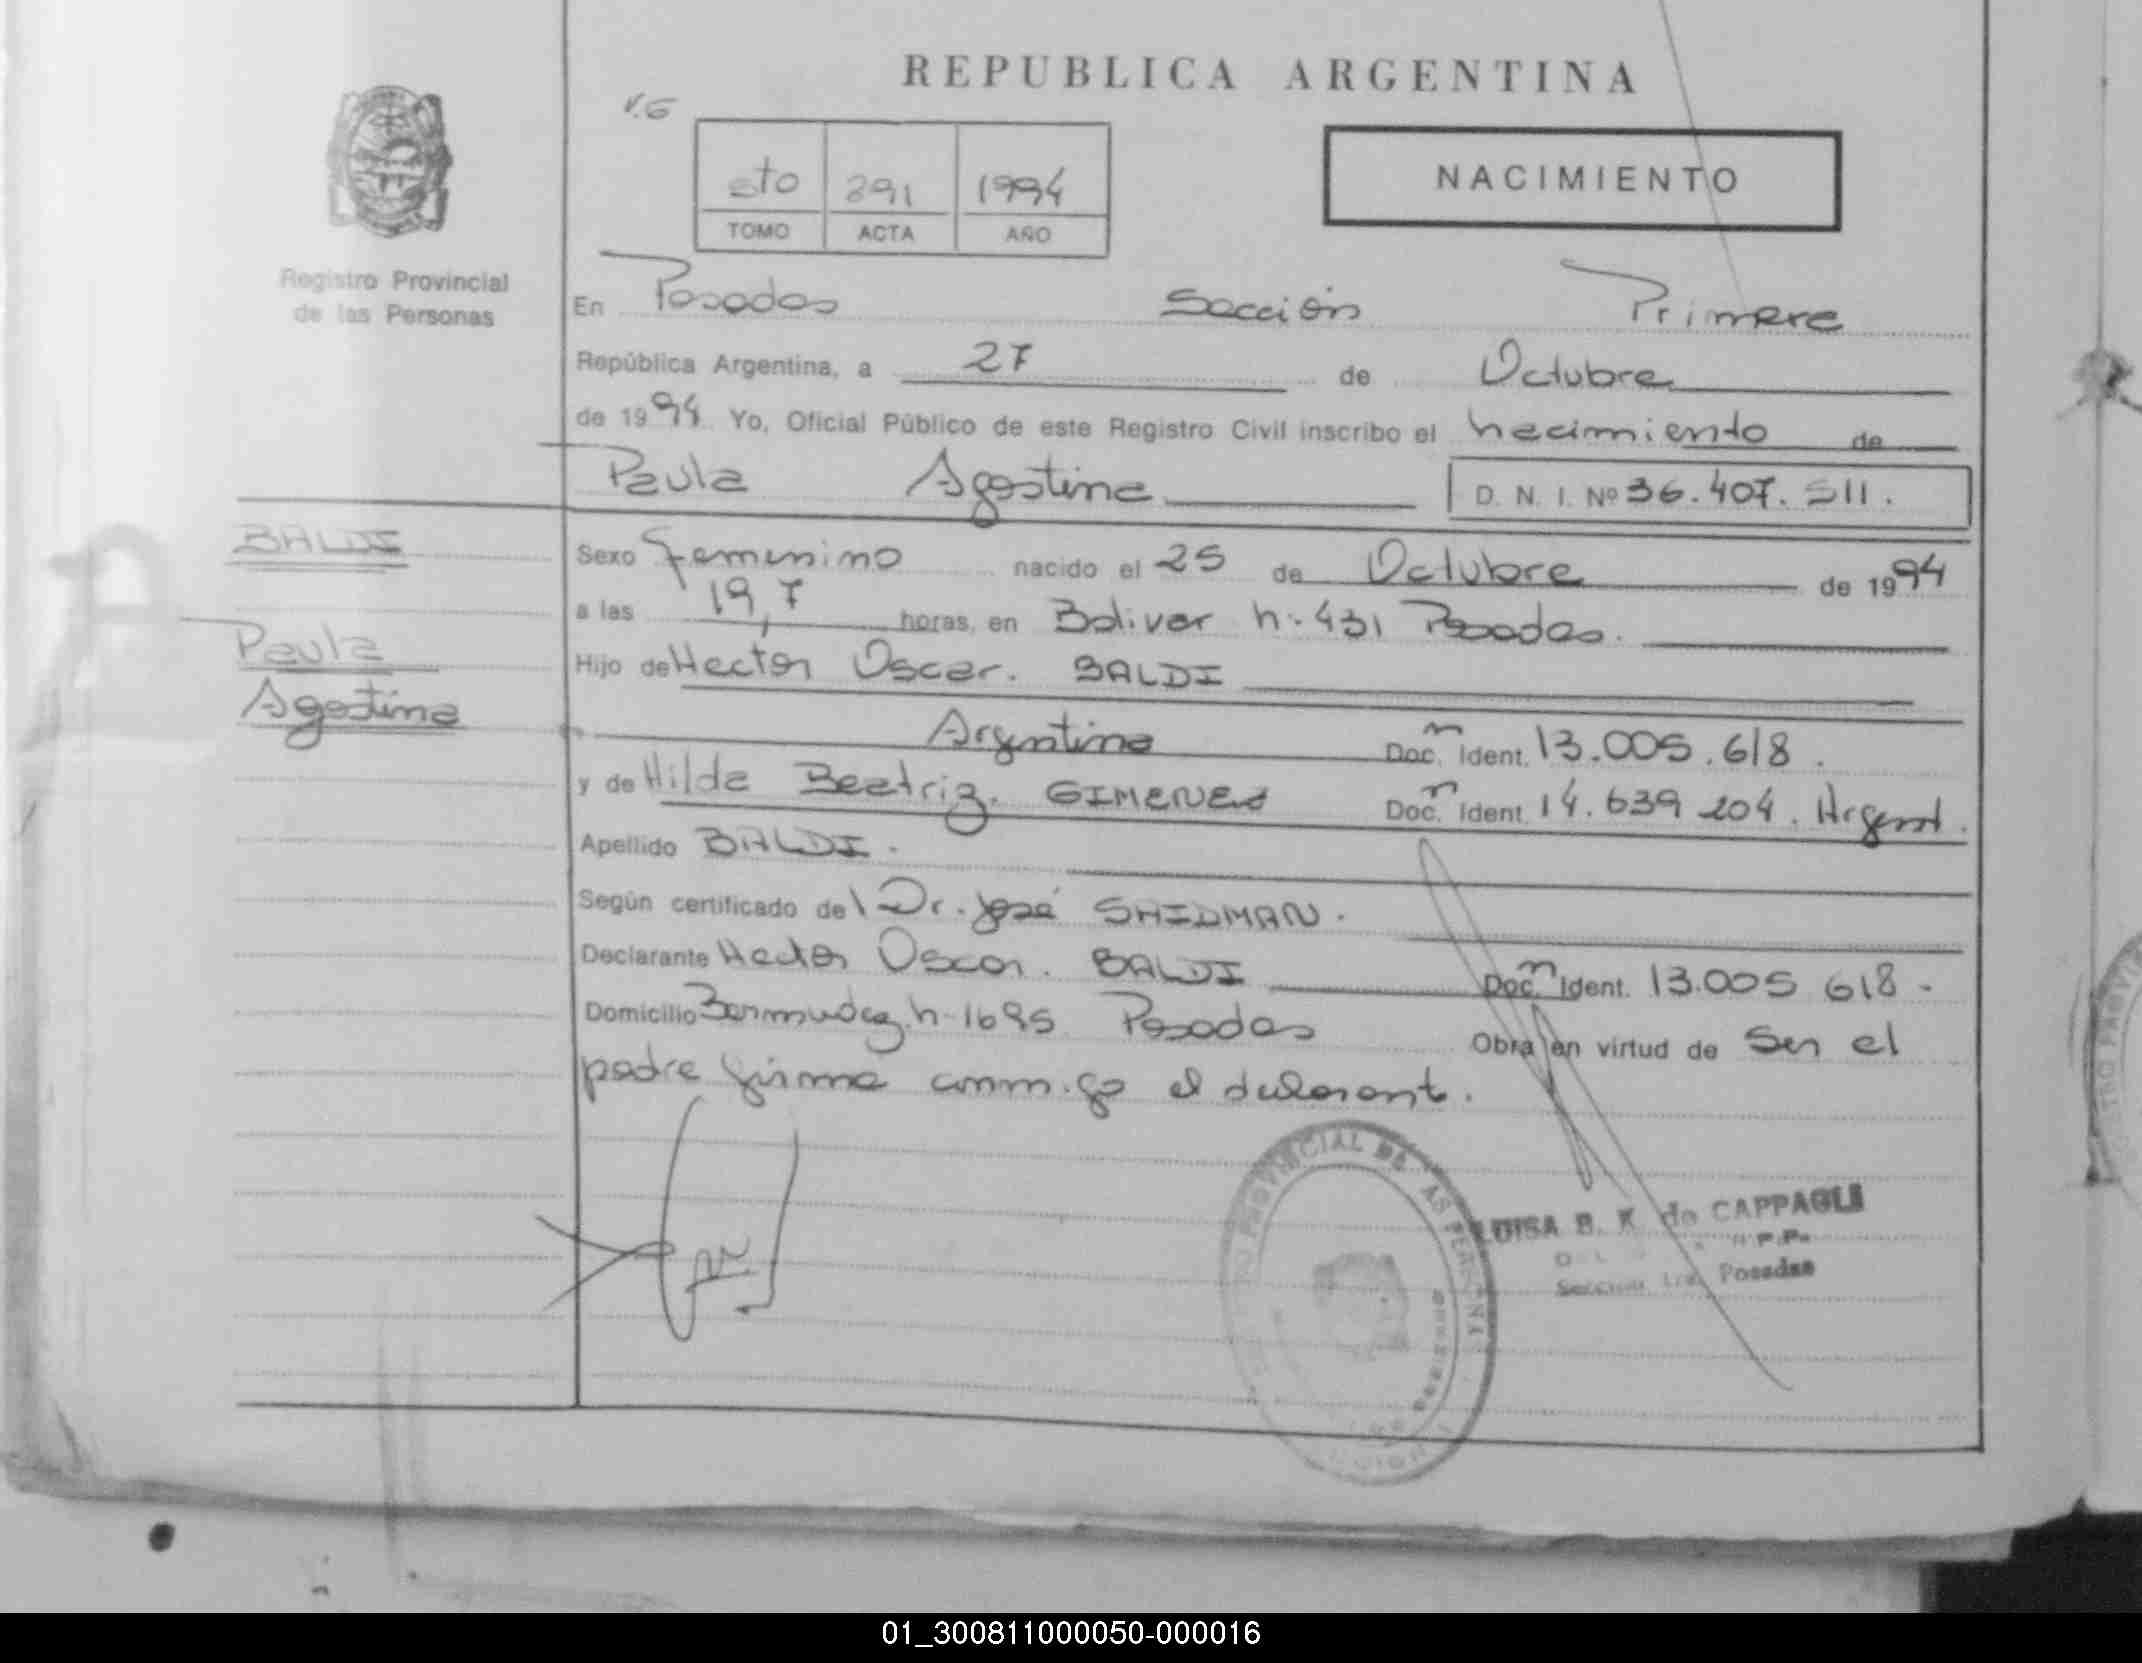 REPUBLICA ARGENTINA
NACIMIENTO
sto 891 1994
TOMO ACTA AÑO
Registro Provincial
de las Personas
En Posadas Sección Primera
República Argentina, a 27 de Octubre
de 1994 Yo, Oficial Público de este Registro Civil inscribo el nacimiento de
Paula Agostina D. N. I. Nº 36.407.511.
BALDI
Paula
Agostina
Sexo Femenino nacido el 25 de Octubre de 1994
a las 19,7 horas, en Bolivar n. 431 Posadas.
Hijo de Hector Oscar. BALDI
Argentina Doc. Ident. 13.005.618.
y de Hilda Beatriz. GIMENEZ Doc. Ident. 14.639 204. Argent.
Apellido BALDI.
Según certificado del Dr. José SHIDMAN.
Declarante Hector Oscar. BALDI Doc. Ident. 13.005 618.
Domicilio Bermudez n 1695 Posadas Obra en virtud de Ser el
padre firma conmigo el declarante.
PROVINCIAL DE LAS PERSONAS
LUISA B. K. de CAPPAGLI
Sección 1ra. Posadas
01_300811000050-000016